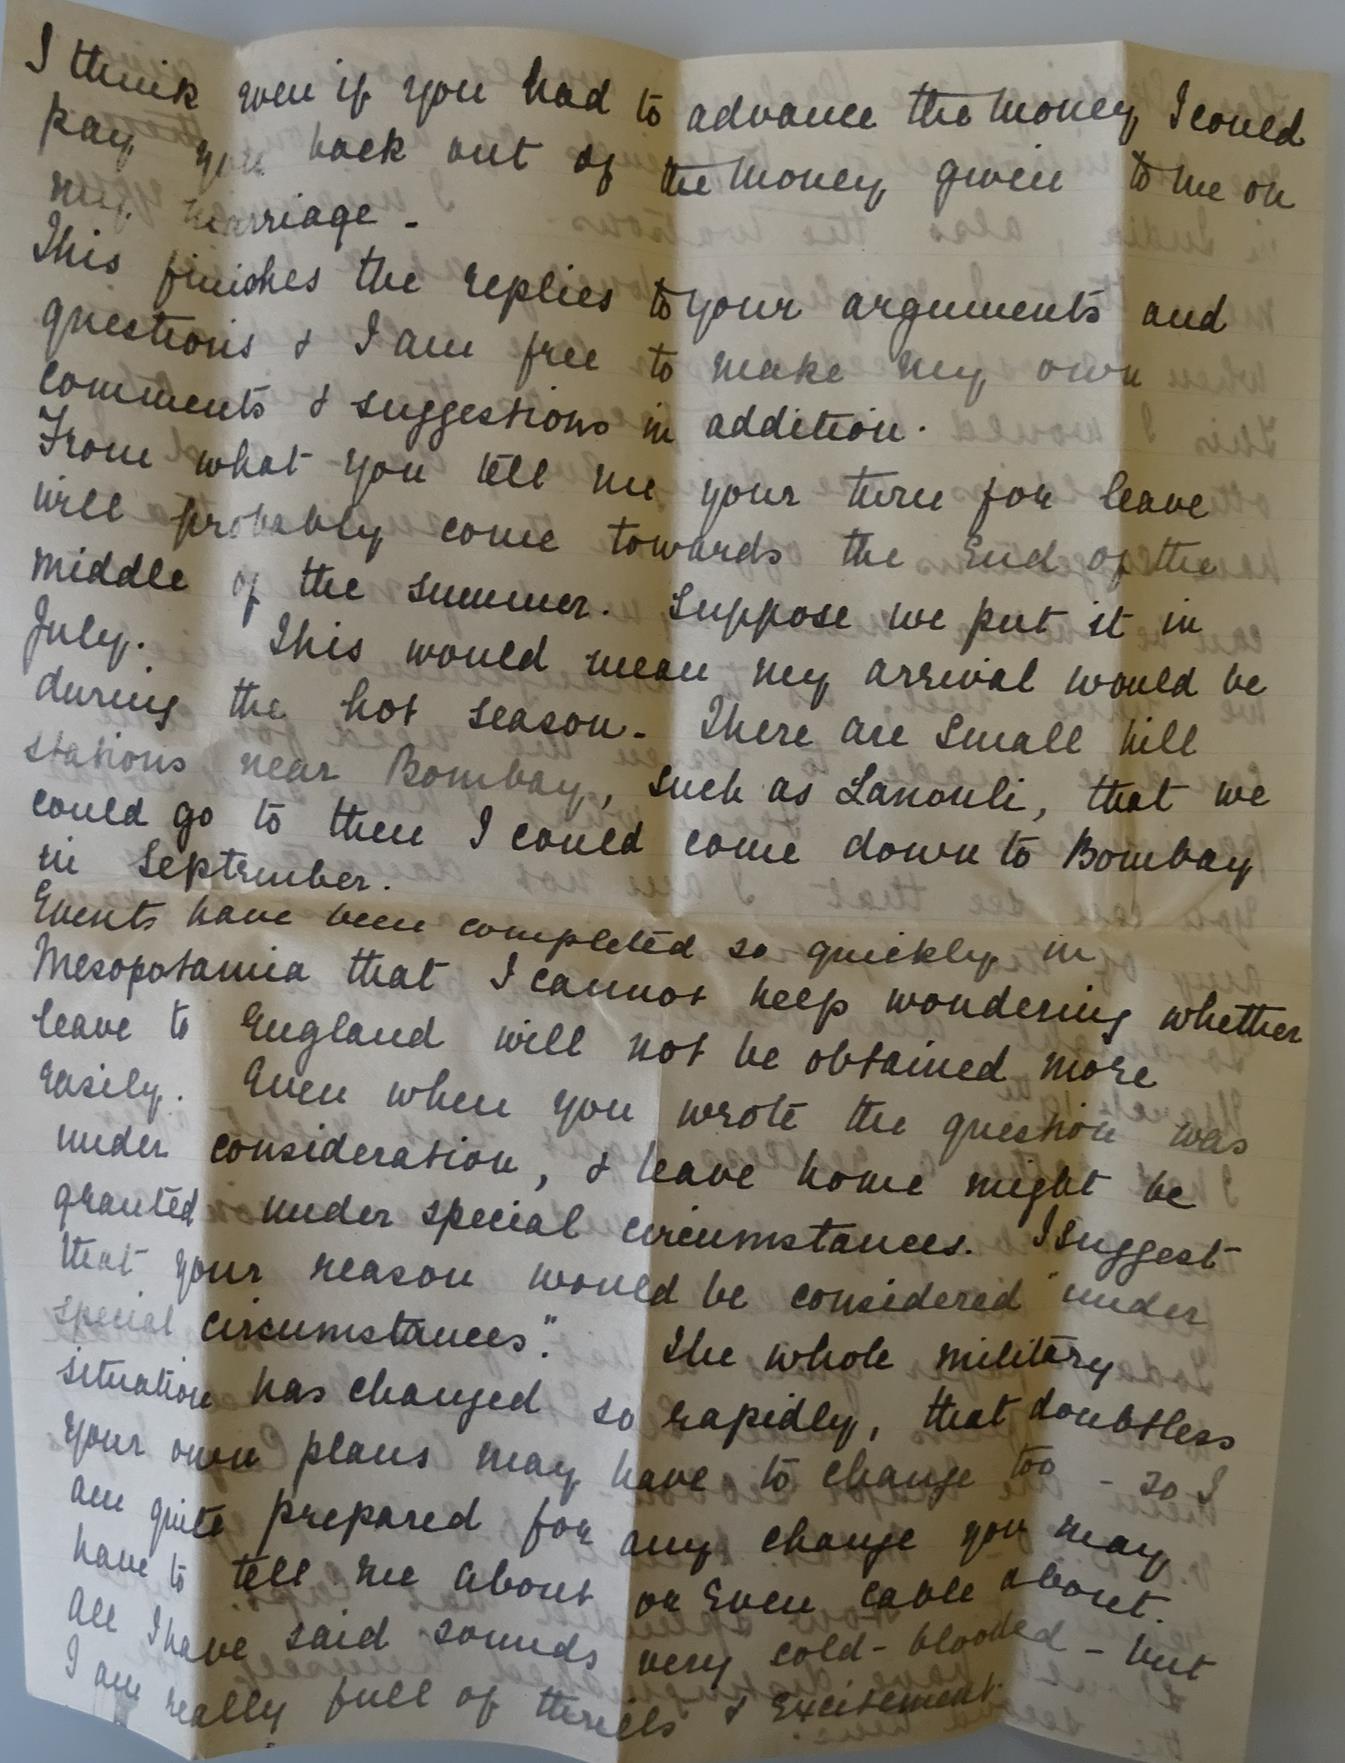 I think even if you had to advance the money I could
pay you back out of the money given to me on
my marriage -
This finishes the replies to your arguments and
questions & I am free to make my own
comments & suggestions in addition.
From what you tell me your turn for leave
will probably come towards the End of the
middle of the summer. Suppose we put it in
July. This would mean my arrival would be
during the hot season - There are small hill
stations near Bombay, such as Lanouli, that we
could go to then I could come down to Bombay
in September.
Events have been completed so quickly in
Mesopotamia that I cannot help wondering whether
leave to England will not be obtained more
easily. Even when you wrote the question was
under consideration, & leave home might be
granted under special circumstances. I suggest
that your reason would be considered "under
special circumstances". The whole military
situation has changed so rapidly, that doubtless
your own plans may have to change too - so I
am quite prepared for any change you may
have to tell me about or even cable about.
All I have said sounds very cold-blooded - but
I am really full of thrills & Excitement.